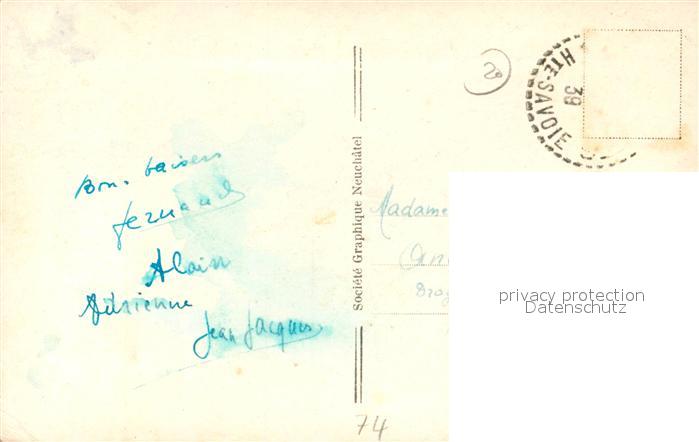 Bons baisers
Fernand
Alain
Adrienne
Jean Jacques
Société Graphique Neuchâtel
20
HTE-SAVOIE
39
Madame
privacy protection
Datenschutz
74